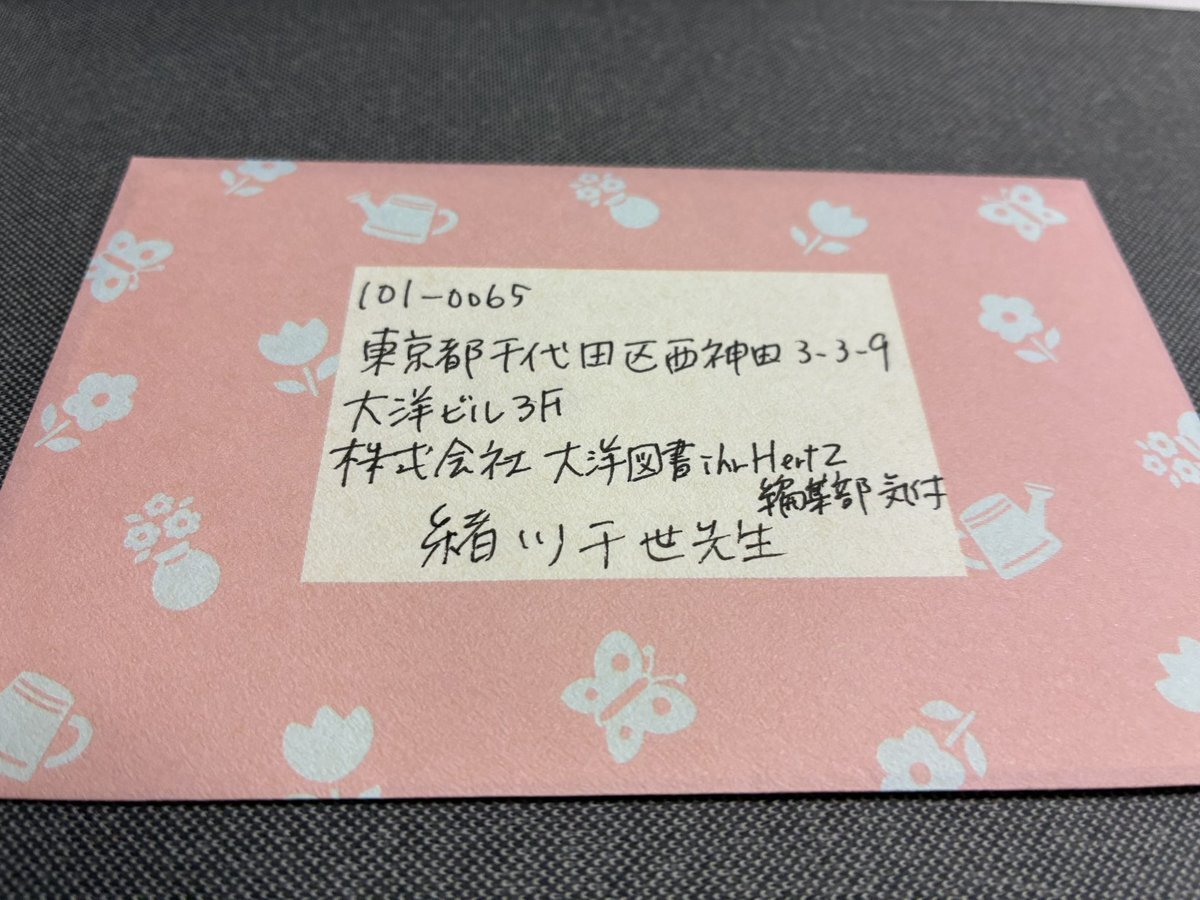 101-0065
東京都千代田区西神田3-3-9
大洋ビル3F
株式会社 大洋図書 ihr HertZ
編集部 気付
緒川千世先生